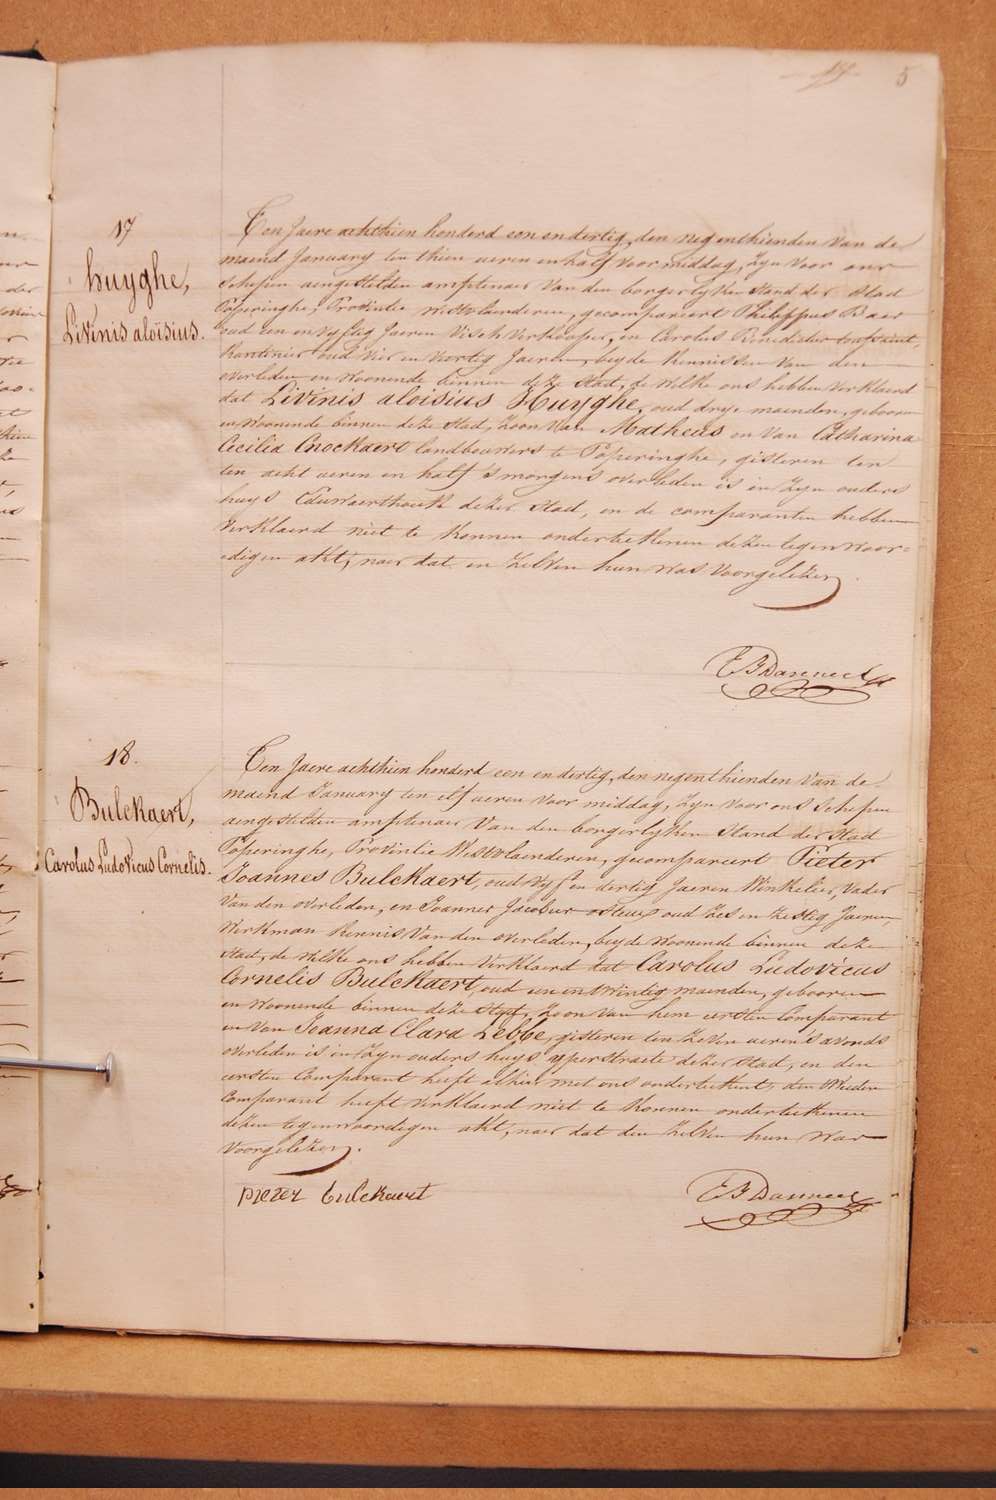 17
5
17
huyghe,
Livinis aloïsius.
Ten Jaere achthien honderd een en dertig, den negenthienden van de
maend January ten thien ueren en half voor middag, zyn voor ons
schepen aengestelden amptenaer van den borgerlyken stand der stad
Poperinghe, Provintie Westvlaenderen, gecompareert Philippus Baer
oud een en vyftig Jaeren Visch Verkooper, en Carolus Benedictus toussaint
kantinier oud vier en veertig Jaeren, beyde kennissen van den
overleden en woonende binnen deze stad, de welke ons hebben verklaerd
dat Livinis aloisius Huyghe, oud drye maenden, gebooren
en woonende binnen deze stad, zoon van Matheus en van Catharina
Cecilia Cnockaert landbouwers te Poperinghe, gisteren ten
ten acht ueren en half s'morgens overleden is in zyn ouders
huys Eduwaerthoek dezer stad, en de comparanten hebben
verklaerd niet te konnen onderteekenen dezen tegenwoor=
=digen akt, naer dat en zelven hun was voorgelezen.
18.
Bulckaert,
Carolus Ludovicus Cornelis.
Ten Jaere achthien honderd een en dertig, den negenthienden van de
maend January ten elf ueren voor middag, zyn voor ons schepen
aengestelden amptenaer van den borgerlyken stand der stad
Poperinghe, Provintie Westvlaenderen, gecompareert Pieter
Joannes Bulckaert, oud vyf en dertig Jaeren Winkelier, Vader
van den overleden, en Joannes Jacobus oud zes en zestig Jaeren,
Werkman kennis van den overleden, beyde woonende binnen deze
stad, de welke ons hebben verklaerd dat Carolus Ludovicus
Cornelis Bulckaert, oud een en twintig maenden, gebooren
en woonende binnen deze stad, zoon van hem eersten Comparant
en van Joanna Clara Lebbe, gisteren ten zeven ueren s'avonds
overleden is in zyn ouders huys yperstraete dezer stad, en den
eersten Comparant heeft alhier met ons onderteekent, den tweeden
Comparant heeft verklaerd niet te konnen onderteekenen
dezen tegenwoordigen akt, naer dat den zelven hun was
voorgelezen.
pieter bulckaert